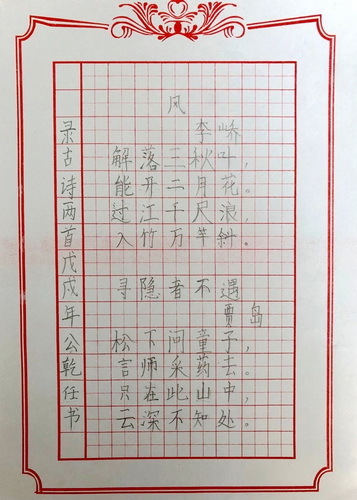 风
李峤
解落三秋叶，
能开二月花。
过江千尺浪，
入竹万竿斜。
寻隐者不遇
贾岛
松下问童子，
言师采药去。
只在此山中，
云深不知处。
录古诗两首戊戌年公乾任书